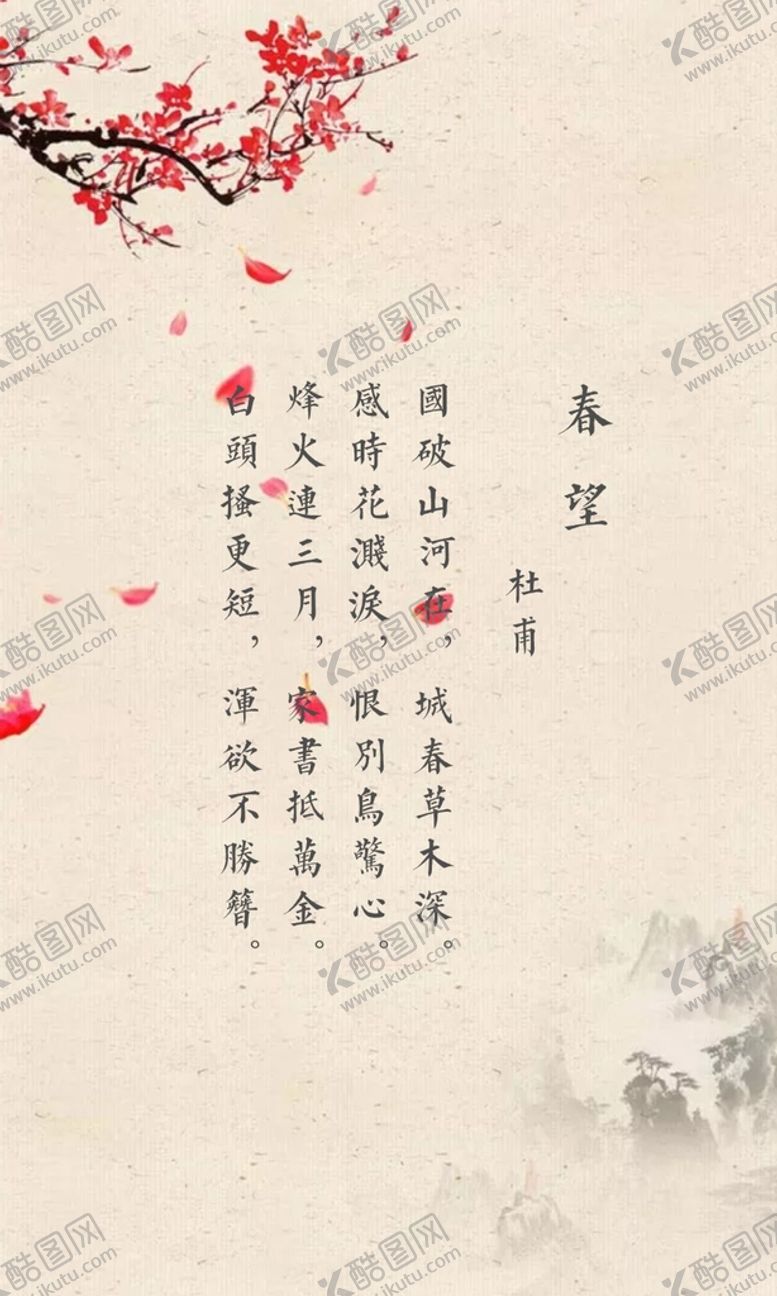 春望
杜甫
國破山河在，城春草木深。
感時花濺淚，恨別鳥驚心。
烽火連三月，家書抵萬金。
白頭搔更短，渾欲不勝簪。
酷图网
www.ikutu.com